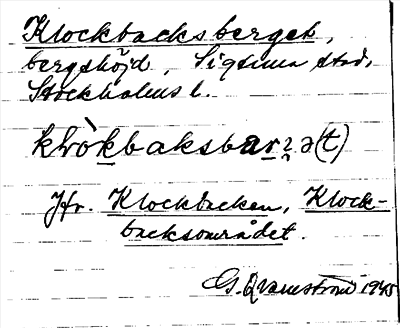 Klockbacksberget,
bergshöjd, Sigtuna stad,
Stockholms l.
klòkbaksbarʒə(t)
Jfr. Klockbacken, Klock-
backsområdet.
G. Qvarnström 1945